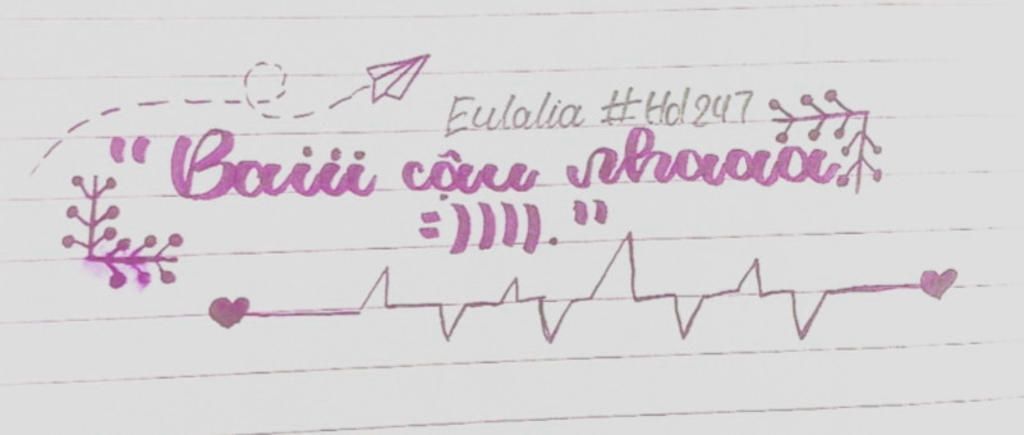 Eulalia #Hd247
" Baiii cậu nhaaaa.
=)))). "